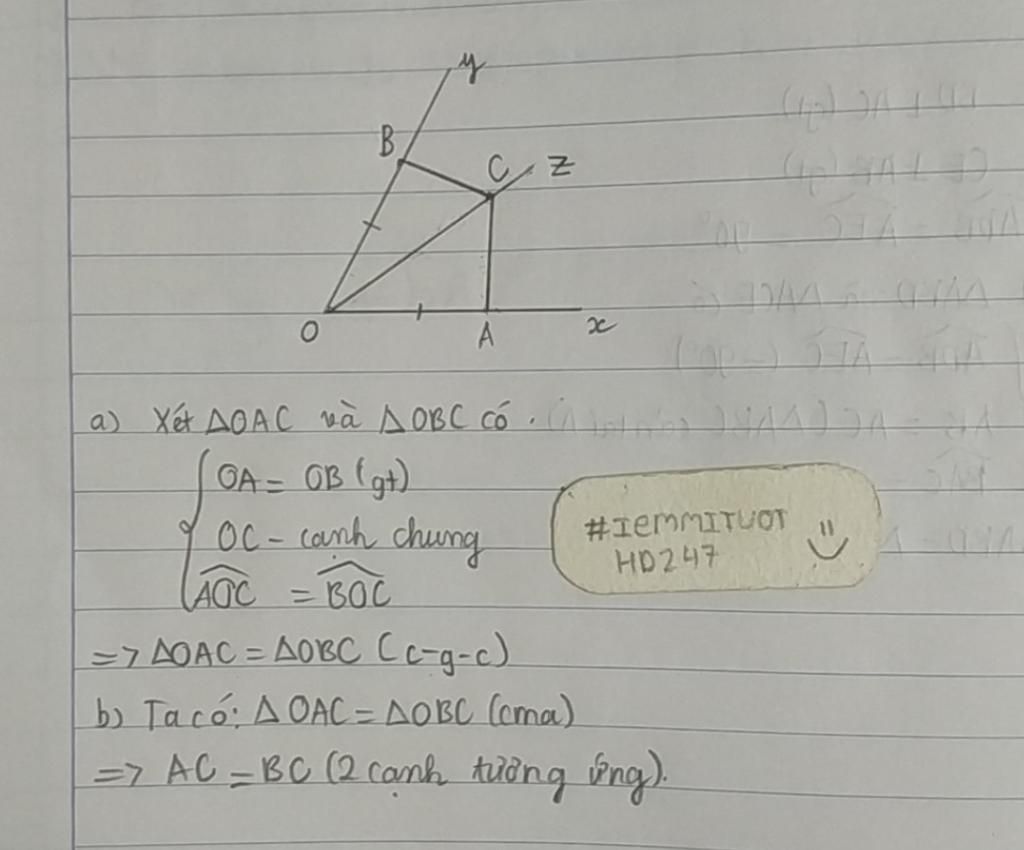 y
B
C
z
O
A
x
a) Xét ΔOAC và ΔOBC có.
OA = OB (gt)
OC - cạnh chung
#IEMMITUOT
HD247
∠AOC = ∠BOC
=> ΔOAC = ΔOBC (c-g-c)
b) Ta có: ΔOAC = ΔOBC (cma)
=> AC = BC (2 cạnh tương ứng).